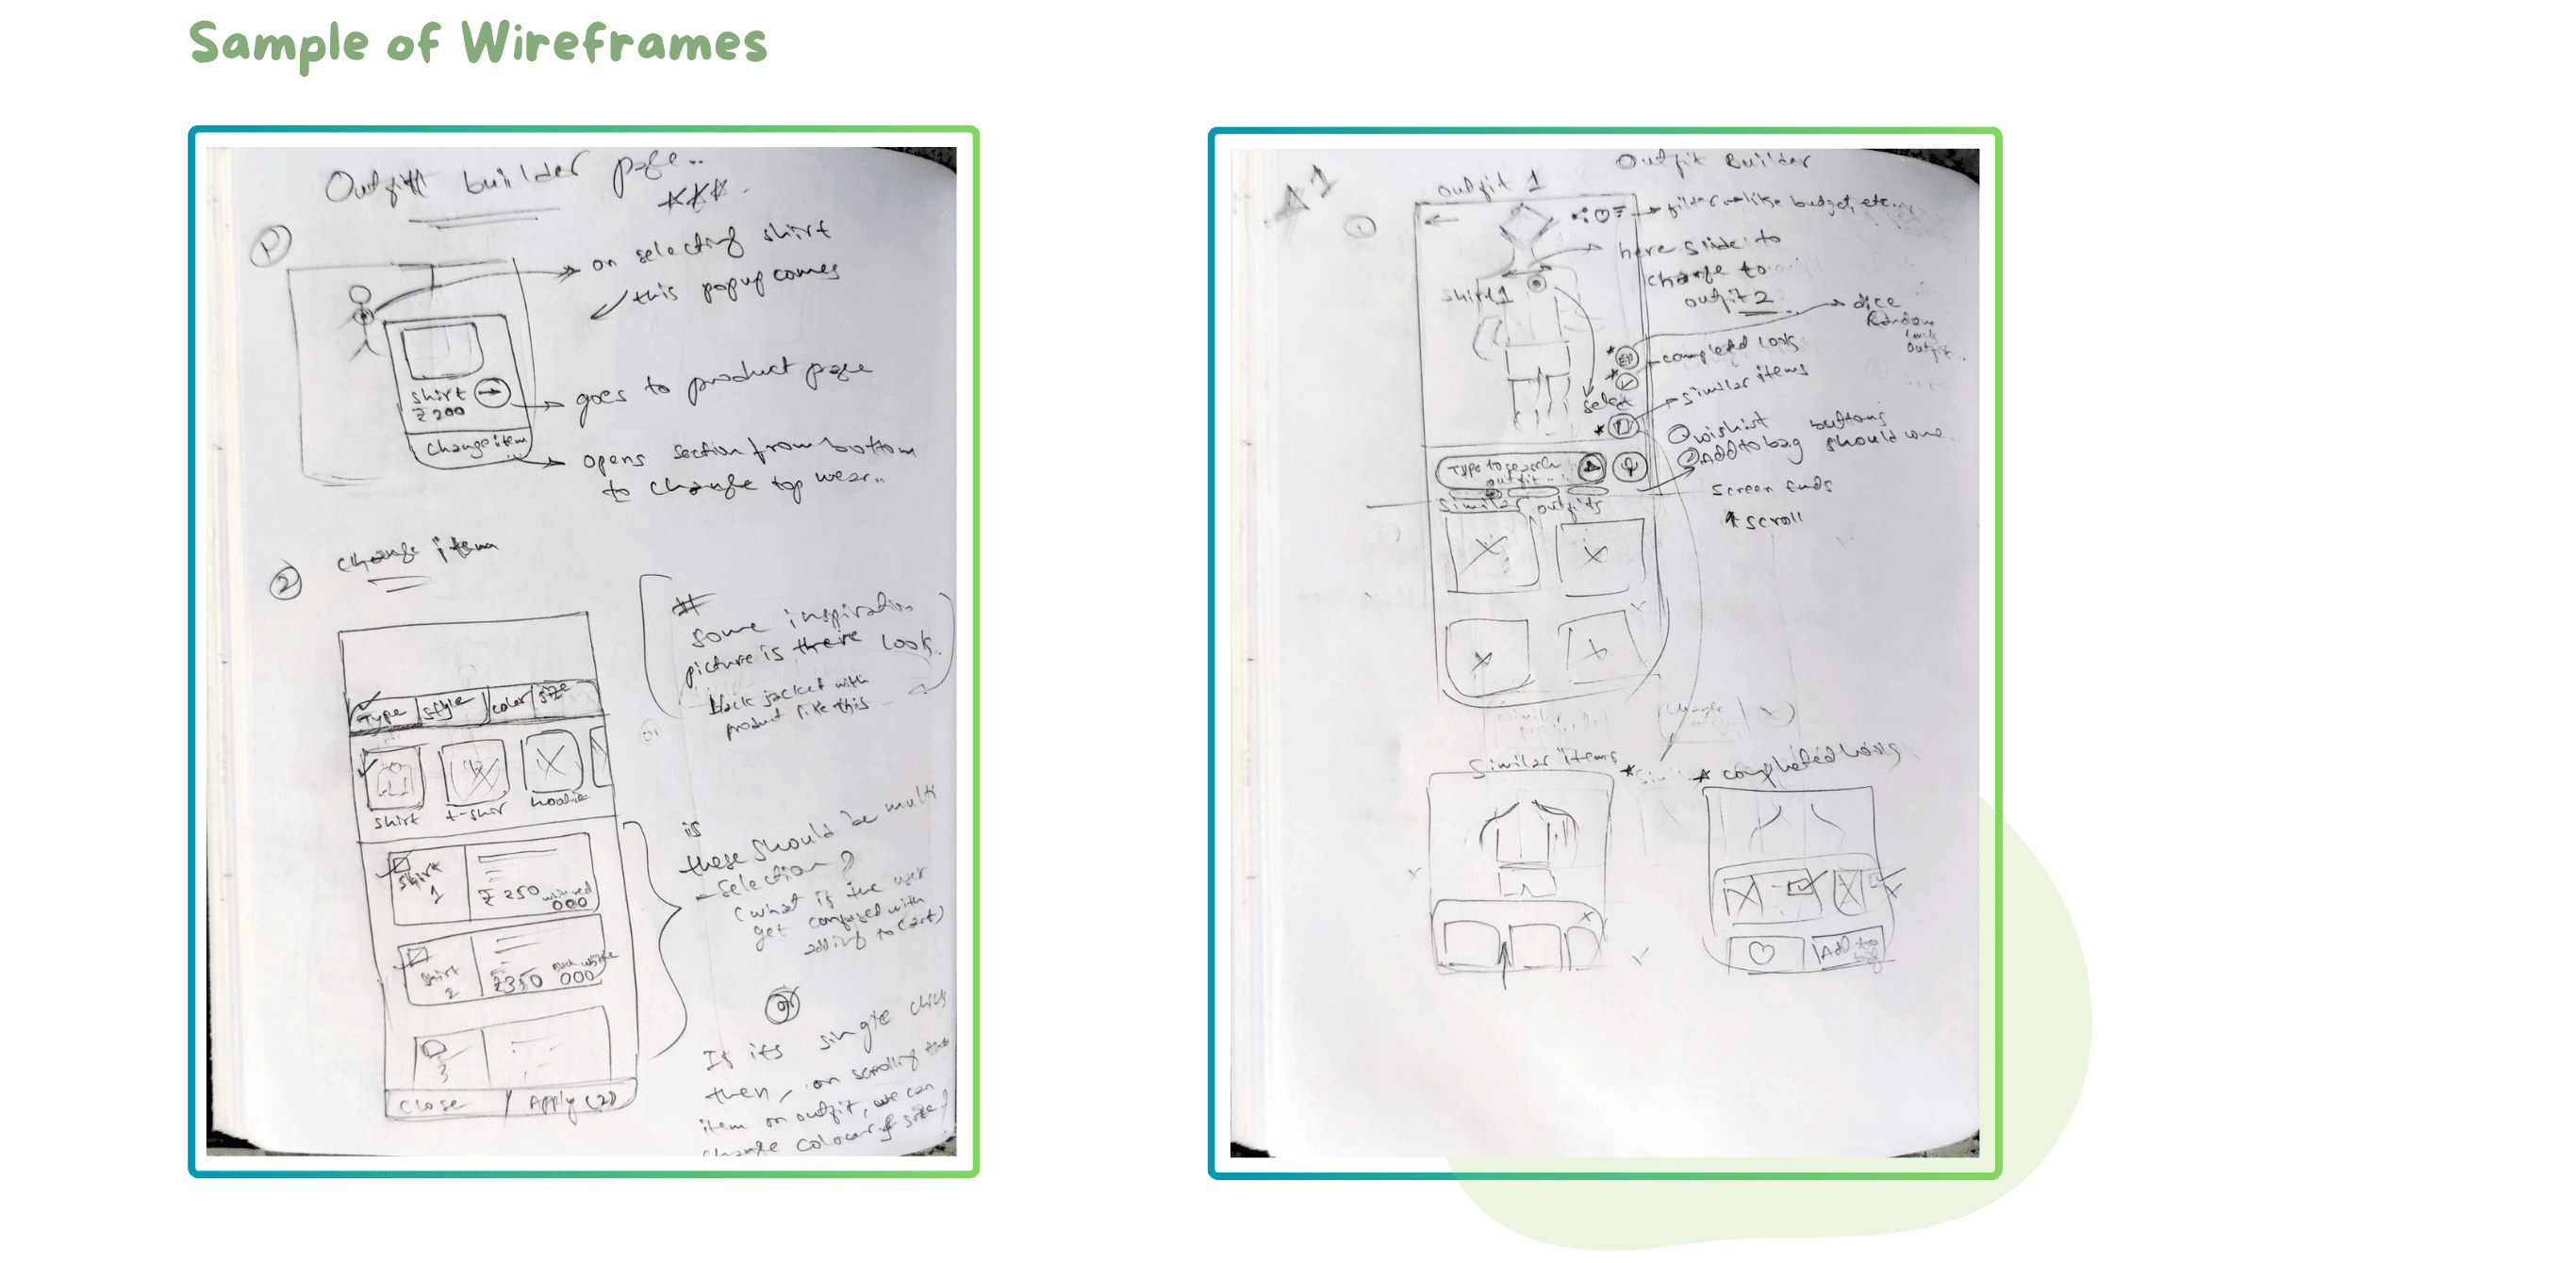 Sample of Wireframes
Outfit builder page..
1
on selecting shirt
this popup comes
shirt
₹200
goes to product page
Change item
opens section from bottom
to change top wear..
2
change item
#
some inspiration
picture is there look.
black jacket with
product like this
Type style color size
shirt t-shir hoodie
is
these should be multi
selection?
(what if the user
get confused with
adding to cart)
shirt
1
₹250
shirt
2
₹350
3
or
If its single click
then, on scrolling the
item on outfit, we can
change colour & size?
Close Apply (2)
A1
Outfit Builder
outfit 1
1
filter → like budget, etc...
here slide to
change to
outfit 2
shirt1
dice
Random
outfit
completed look
similar items
select
① wishlist buttons
② Add to bag should come
Type to search
outfit..
screen ends
scroll
similar outfits
similar items
completed look
Add to
bag